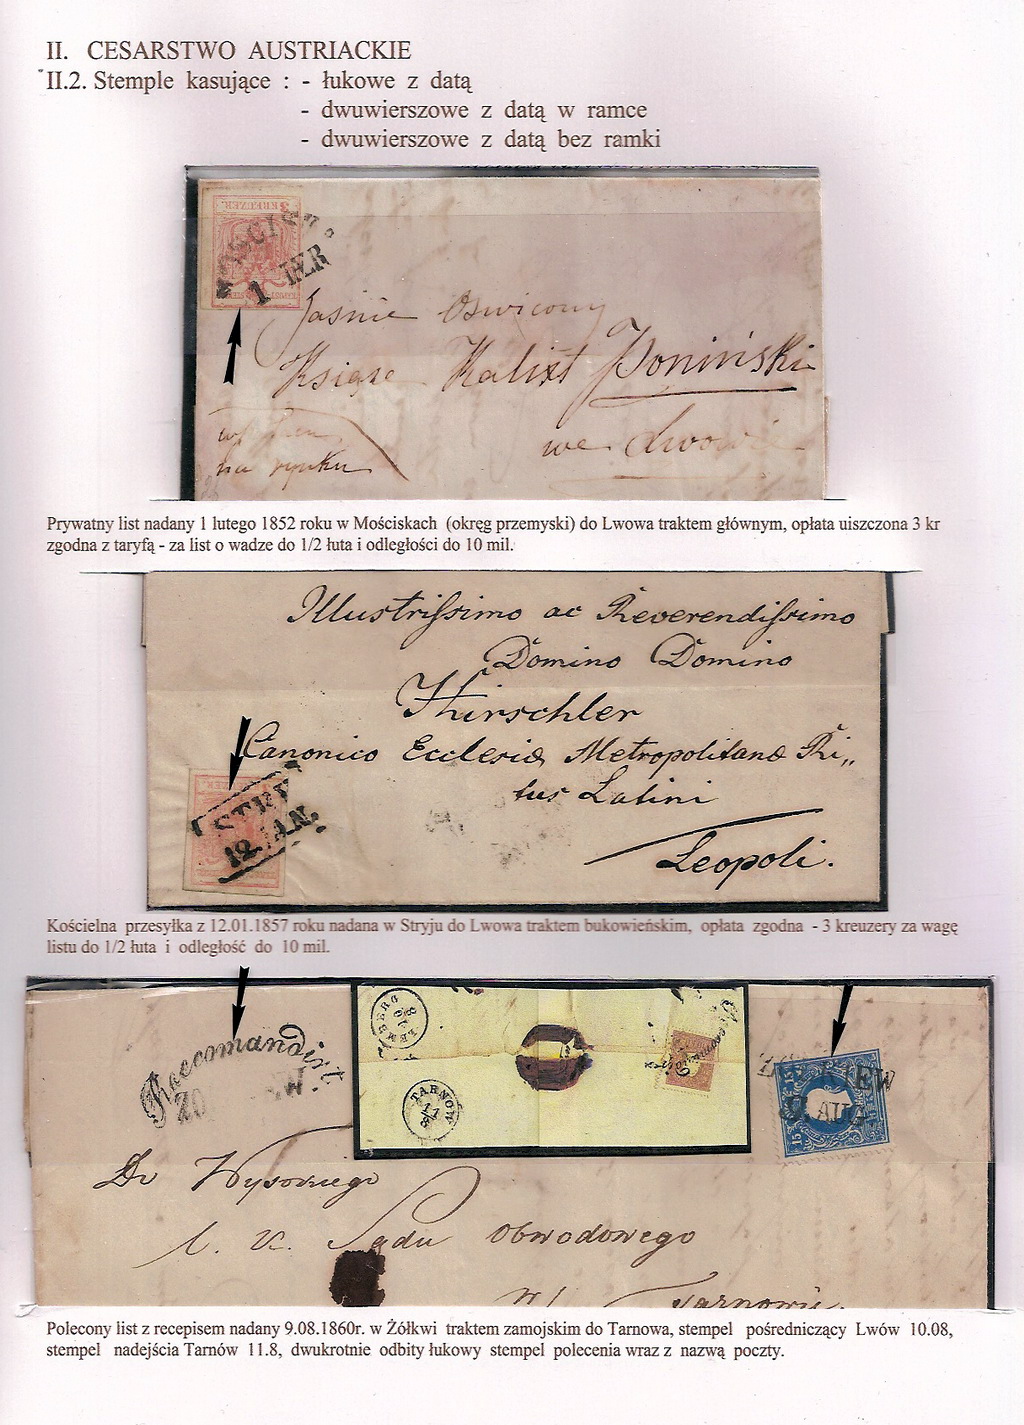 II. CESARSTWO AUSTRIACKIE
II.2. Stemple kasujące : - łukowe z datą
- dwuwierszowe z datą w ramce
- dwuwierszowe z datą bez ramki
3 KREUZER
1 FEB
Jaśnie Oswicony
Książe Kalixt Poniński
we Lwowie
na rynku
Prywatny list nadany 1 lutego 1852 roku w Mościskach (okręg przemyski) do Lwowa traktem głównym, opłata uiszczona 3 kr
zgodna z taryfą - za list o wadze do 1/2 łuta i odległości do 10 mil.
Illustrissimo ac Reverendissimo
Domino Domino
Hirschler
Canonico Ecclesiæ Metropolitanæ Ri„
tus Latini
Leopoli.
STRY
12. JAN.
Kościelna przesyłka z 12.01.1857 roku nadana w Stryju do Lwowa traktem bukowieńskim, opłata zgodna - 3 kreuzery za wagę
listu do 1/2 łuta i odległość do 10 mil.
Raccomandirt.
LEMBERG
TARNOW
15 15
EW
9. AUG
Do Wysokiego
c. k. Sądu Obwodowego
w Tarnowie.
Polecony list z recepisem nadany 9.08.1860r. w Żółkwi traktem zamojskim do Tarnowa, stempel pośredniczący Lwów 10.08,
stempel nadejścia Tarnów 11.8, dwukrotnie odbity łukowy stempel polecenia wraz z nazwą poczty.